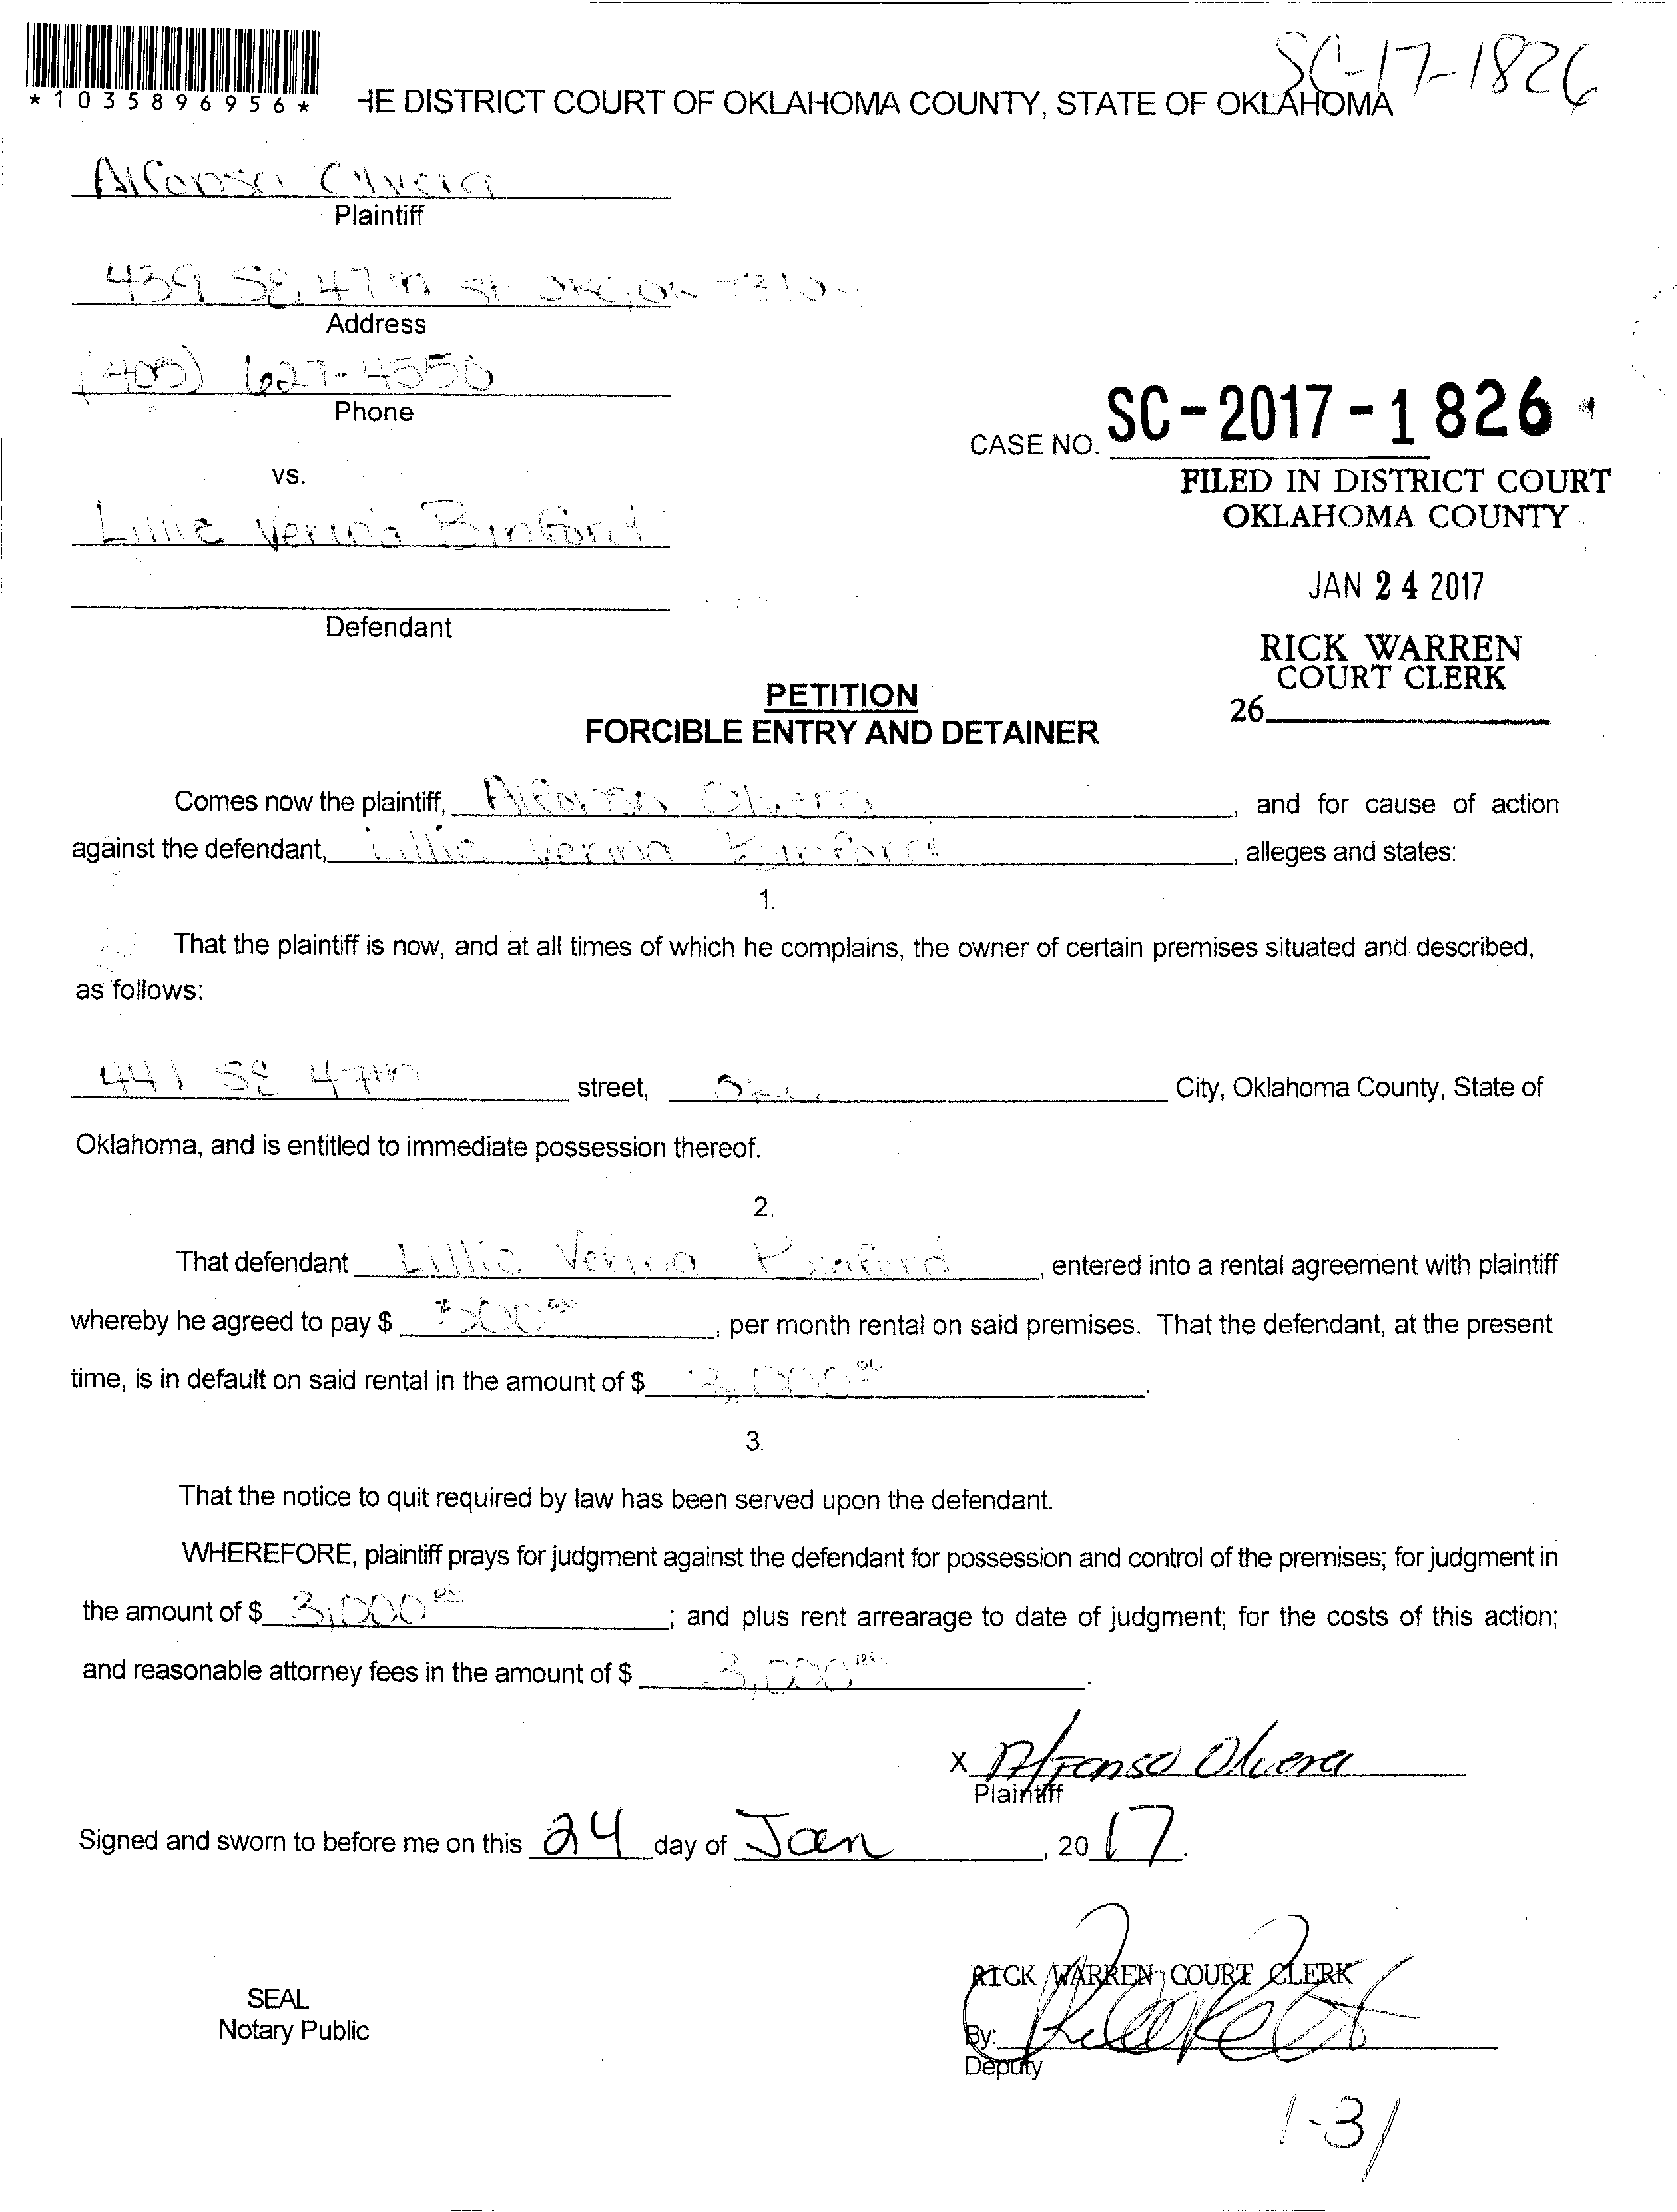 SC-17-1826
*1035896956*
HE DISTRICT COURT OF OKLAHOMA COUNTY, STATE OF OKLAHOMA
Alfonso Olvera
Plaintiff
439 SE 47th st OKC, OK
Address
(405) 627-4550
Phone
CASE NO. SC-2017-1826
vs.
FILED IN DISTRICT COURT
OKLAHOMA COUNTY
Lillie Verina Binford
JAN 24 2017
Defendant
RICK WARREN
COURT CLERK
26
PETITION
FORCIBLE ENTRY AND DETAINER
Comes now the plaintiff, Alfonso Olvera, and for cause of action
against the defendant, Lillie Verina Binford, alleges and states:
1.
That the plaintiff is now, and at all times of which he complains, the owner of certain premises situated and described,
as follows:
441 SE 47th street, City, Oklahoma County, State of
Oklahoma, and is entitled to immediate possession thereof.
2.
That defendant Lillie Verina Binford, entered into a rental agreement with plaintiff
whereby he agreed to pay $, per month rental on said premises. That the defendant, at the present
time, is in default on said rental in the amount of $ 3,000.
3.
That the notice to quit required by law has been served upon the defendant.
WHEREFORE, plaintiff prays for judgment against the defendant for possession and control of the premises; for judgment in
the amount of $ 3,000; and plus rent arrearage to date of judgment; for the costs of this action;
and reasonable attorney fees in the amount of $ 3,000.
x Alfonso Olvera
Plaintiff
Signed and sworn to before me on this 24 day of Jan, 2017.
RICK WARREN COURT CLERK
SEAL
Notary Public
By:
Deputy
1-31